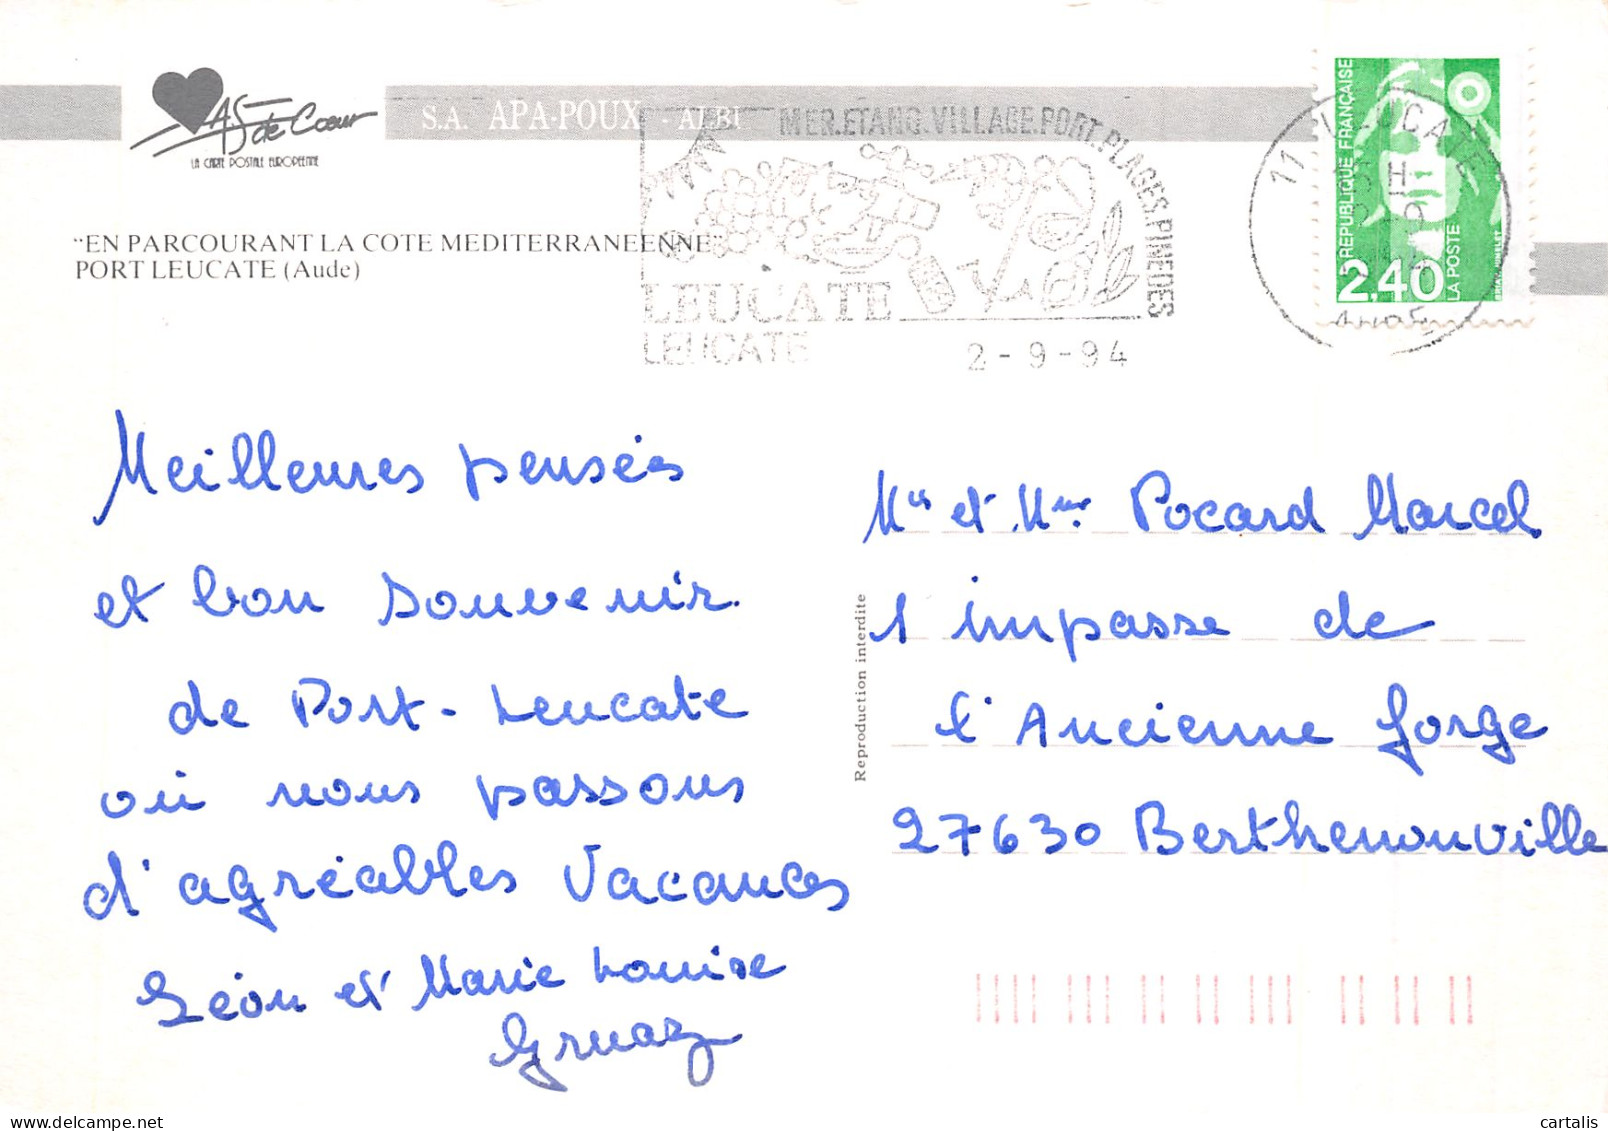 AS de Cœur
LA CARTE POSTALE EUROPEENNE
S.A. APA-POUX - ALBI
"EN PARCOURANT LA COTE MEDITERRANEENNE"
PORT LEUCATE (Aude)
MER.ETANG.VILLAGE.PORT.PLAGES.PINEDES
LEUCATE
LEUCATE
2-9-94
11 LEUCATE
AUDE
REPUBLIQUE FRANÇAISE
2,40
LA POSTE
Meilleures pensées
et bon souvenir
de Port-Leucate
où nous passons
d'agréables Vacances
Léon et Marie Louise
Gruaz
Reproduction interdite
Mr et Mme Pocard Marcel
1 impasse de
l'Ancienne forge
27630 Berthenonville
cartalis